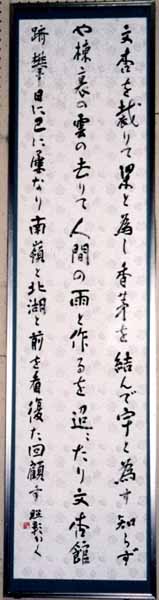 文杏を裁りて梁と為し香茅を結んで宇と為す知らず
や棟裏の雲の去りて人間の雨と作るを 迢々たり文杏館
躋攀すること日に已に屡なり南嶺と北湖と前を看復た回顧す